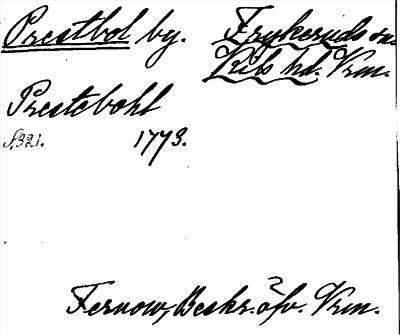 Prestbol by. Frykeruds sn.
Kils hd. Vrm.
Prestebohl
S. 321. 1773.
Fernow, Beskr. öfv. Vrm.